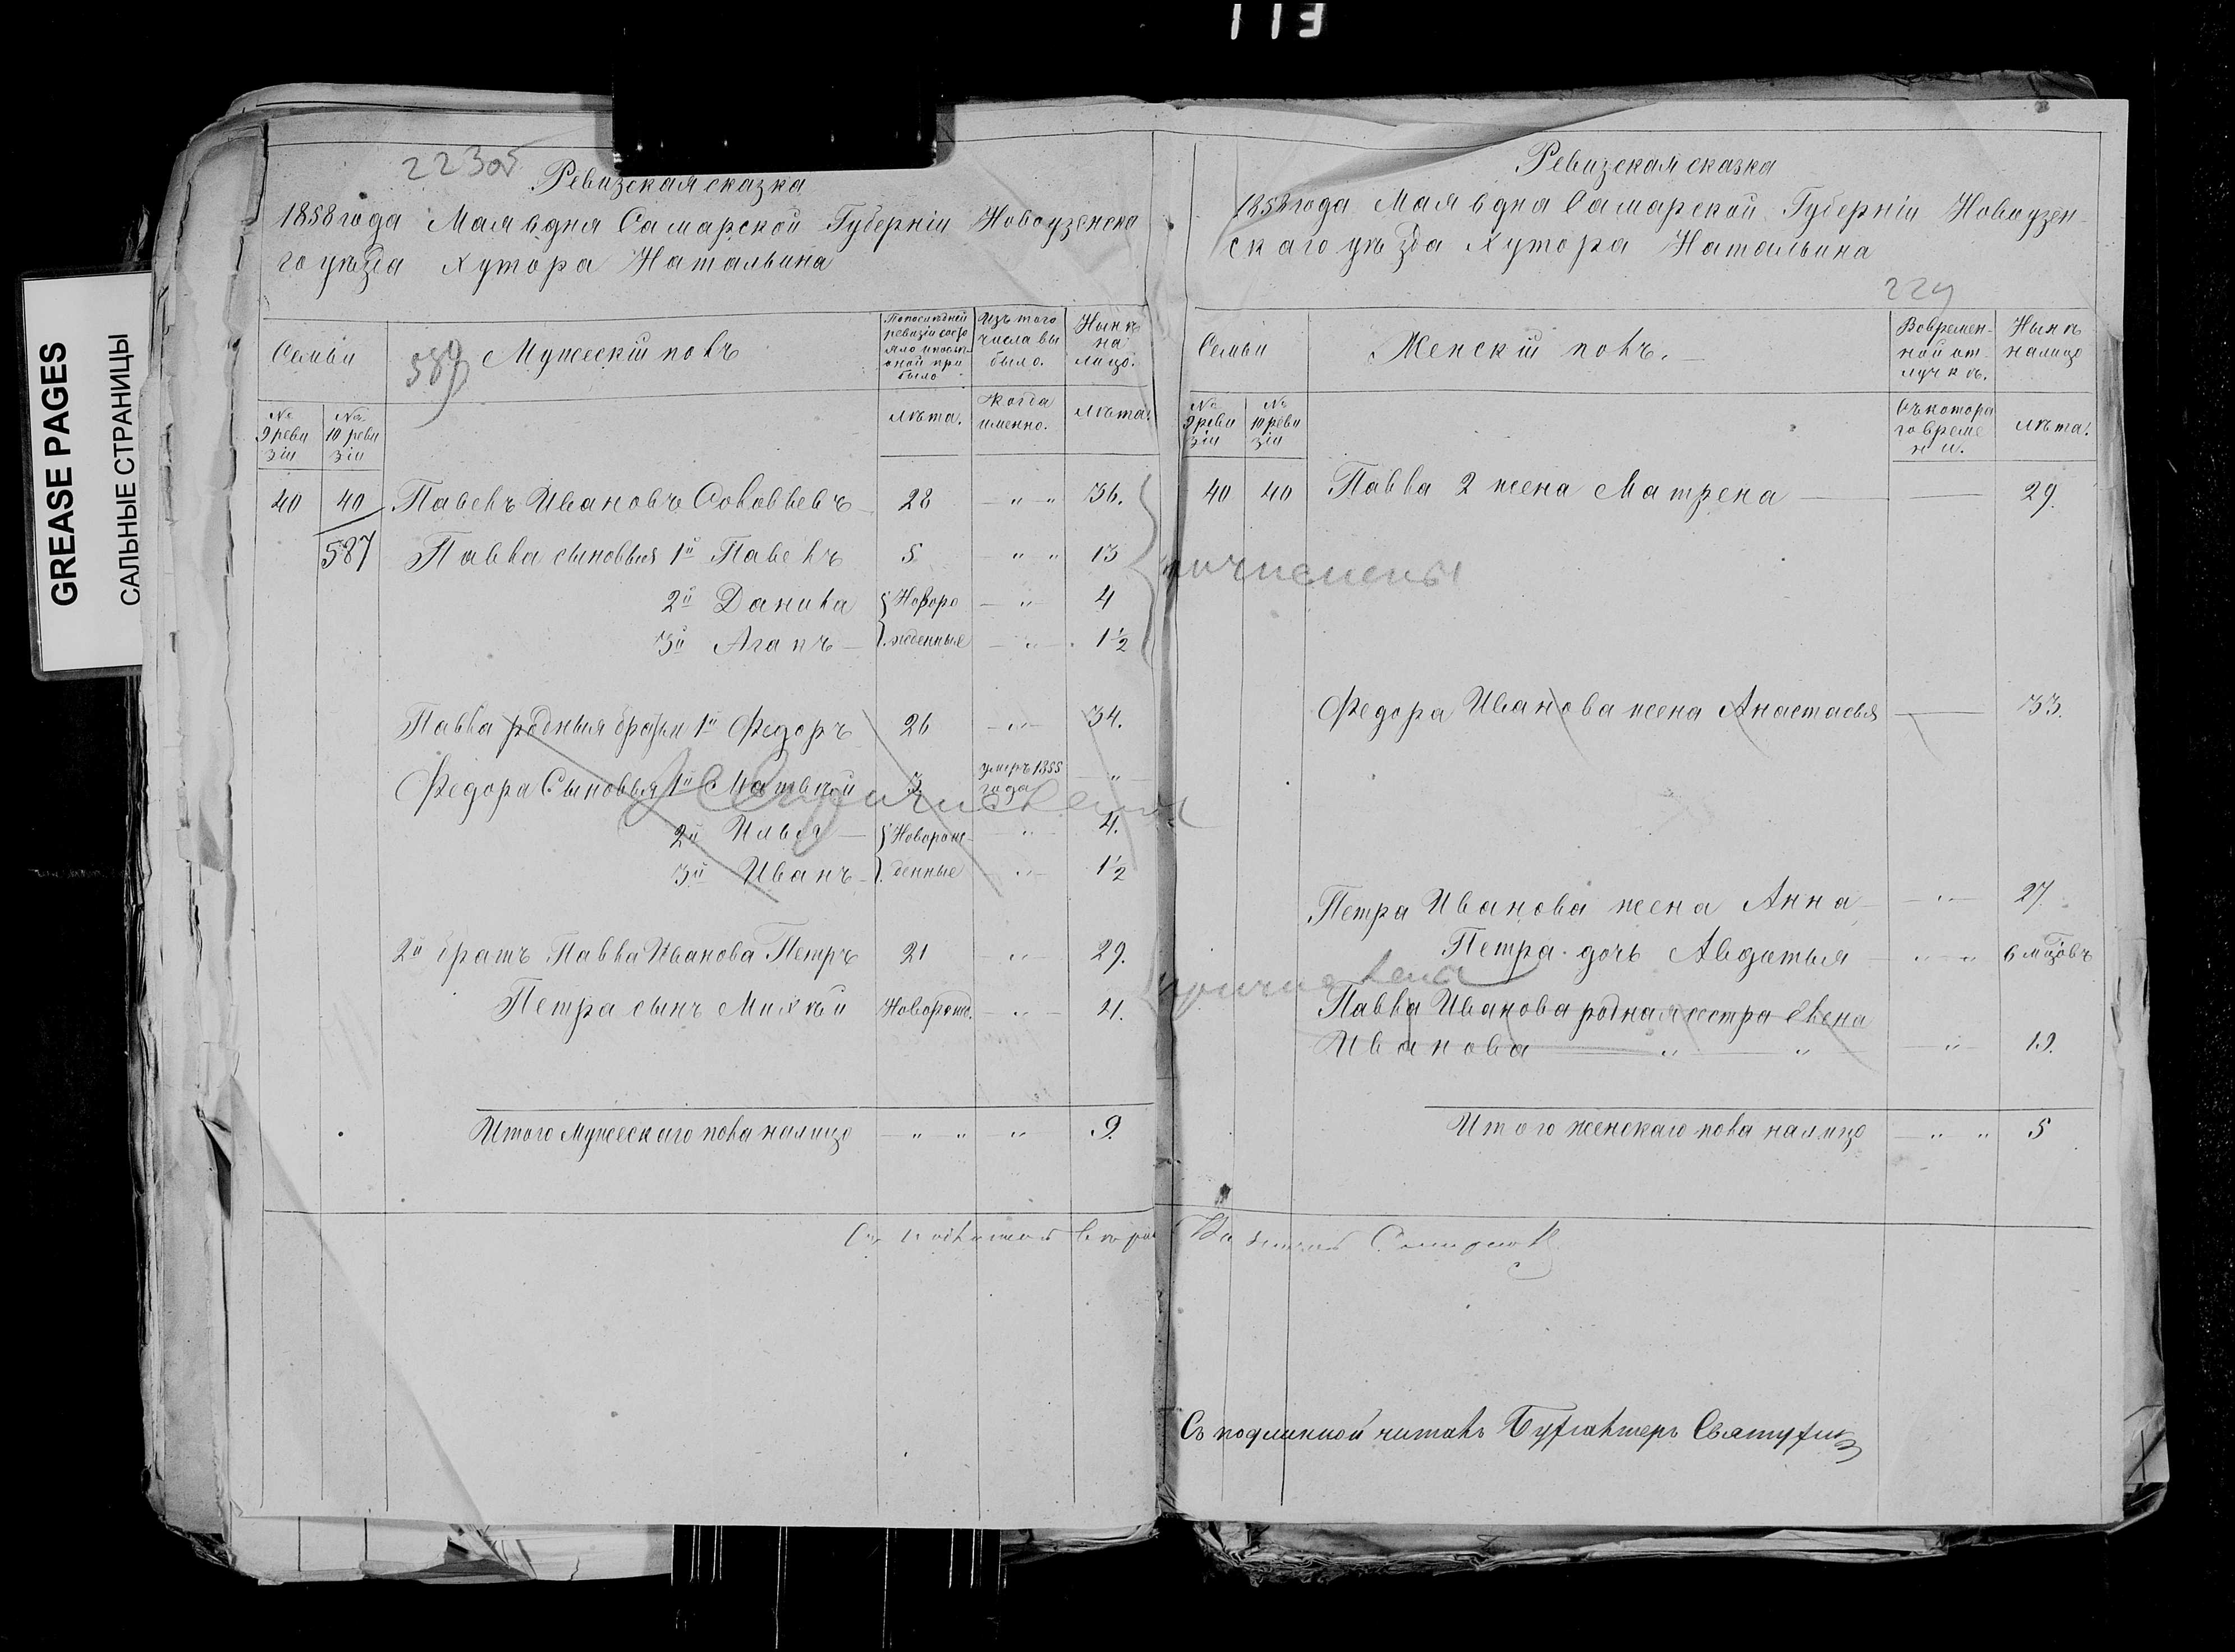 113
GREASE PAGES
САЛЬНЫЕ СТРАНИЦЫ
223об
Ревизская сказка
1858 года Мая 6 дня Самарской Губерніи Новоузенска
го уѣзда Хутора Натальина
Семьи
589
Мужескій полъ
По последней ревизіи состо яло и после оной при было
Изъ того числа вы было.
Нынѣ на лицо.
№ 9 реви зіи
№ 10 реви зіи
лѣта.
Когда именно.
лѣта.
40 40 Павелъ Ивановъ Соловьевъ 28 — " " 36.
587 Павла сыновья 1й Павелъ 5 — " " 13
2й Данила { Новоро — " — 4
3й Агапъ — } жденныя — " — 1½
Павла родныя братья 1й Федоръ 26 — " — 34.
Федора Сыновья 1й Матвѣй 3 умеръ 1855 года — " —
2й Илья — { Новорож — " — 4.
3й Иванъ — } денные — " — 1½
2й братъ Павла Иванова Петръ 21 — " — 29.
Петра сынъ Михѣй Новорожд. — " — 4.
Итого мужескаго пола налицо — " " — " 9.
Ревизская сказка
1858 года Мая 6 дня Самарской Губерніи Новоузен-
скаго уѣзда Хутора Натальина
224
Семьи
Женскій полъ.
Во времен- ной от- лучкѣ.
Нынѣ на лицо
№ 9 реви зіи
№ 10 реви зіи
Съ котора го време ни.
лѣта.
40 40 Павла 2 жена Матрена — — 29.
причислены
Федора Иванова жена Анастасья — 33.
Петра Иванова жена Анна — " — 27.
Петра дочь Авдотья — " " 6 мцовъ
причислена
Павла Иванова родная сестра Елена
Иванова — " — " — " — 19.
Итого женскаго пола налицо — " " 5
Съ подлинной читалъ Бухгалтеръ